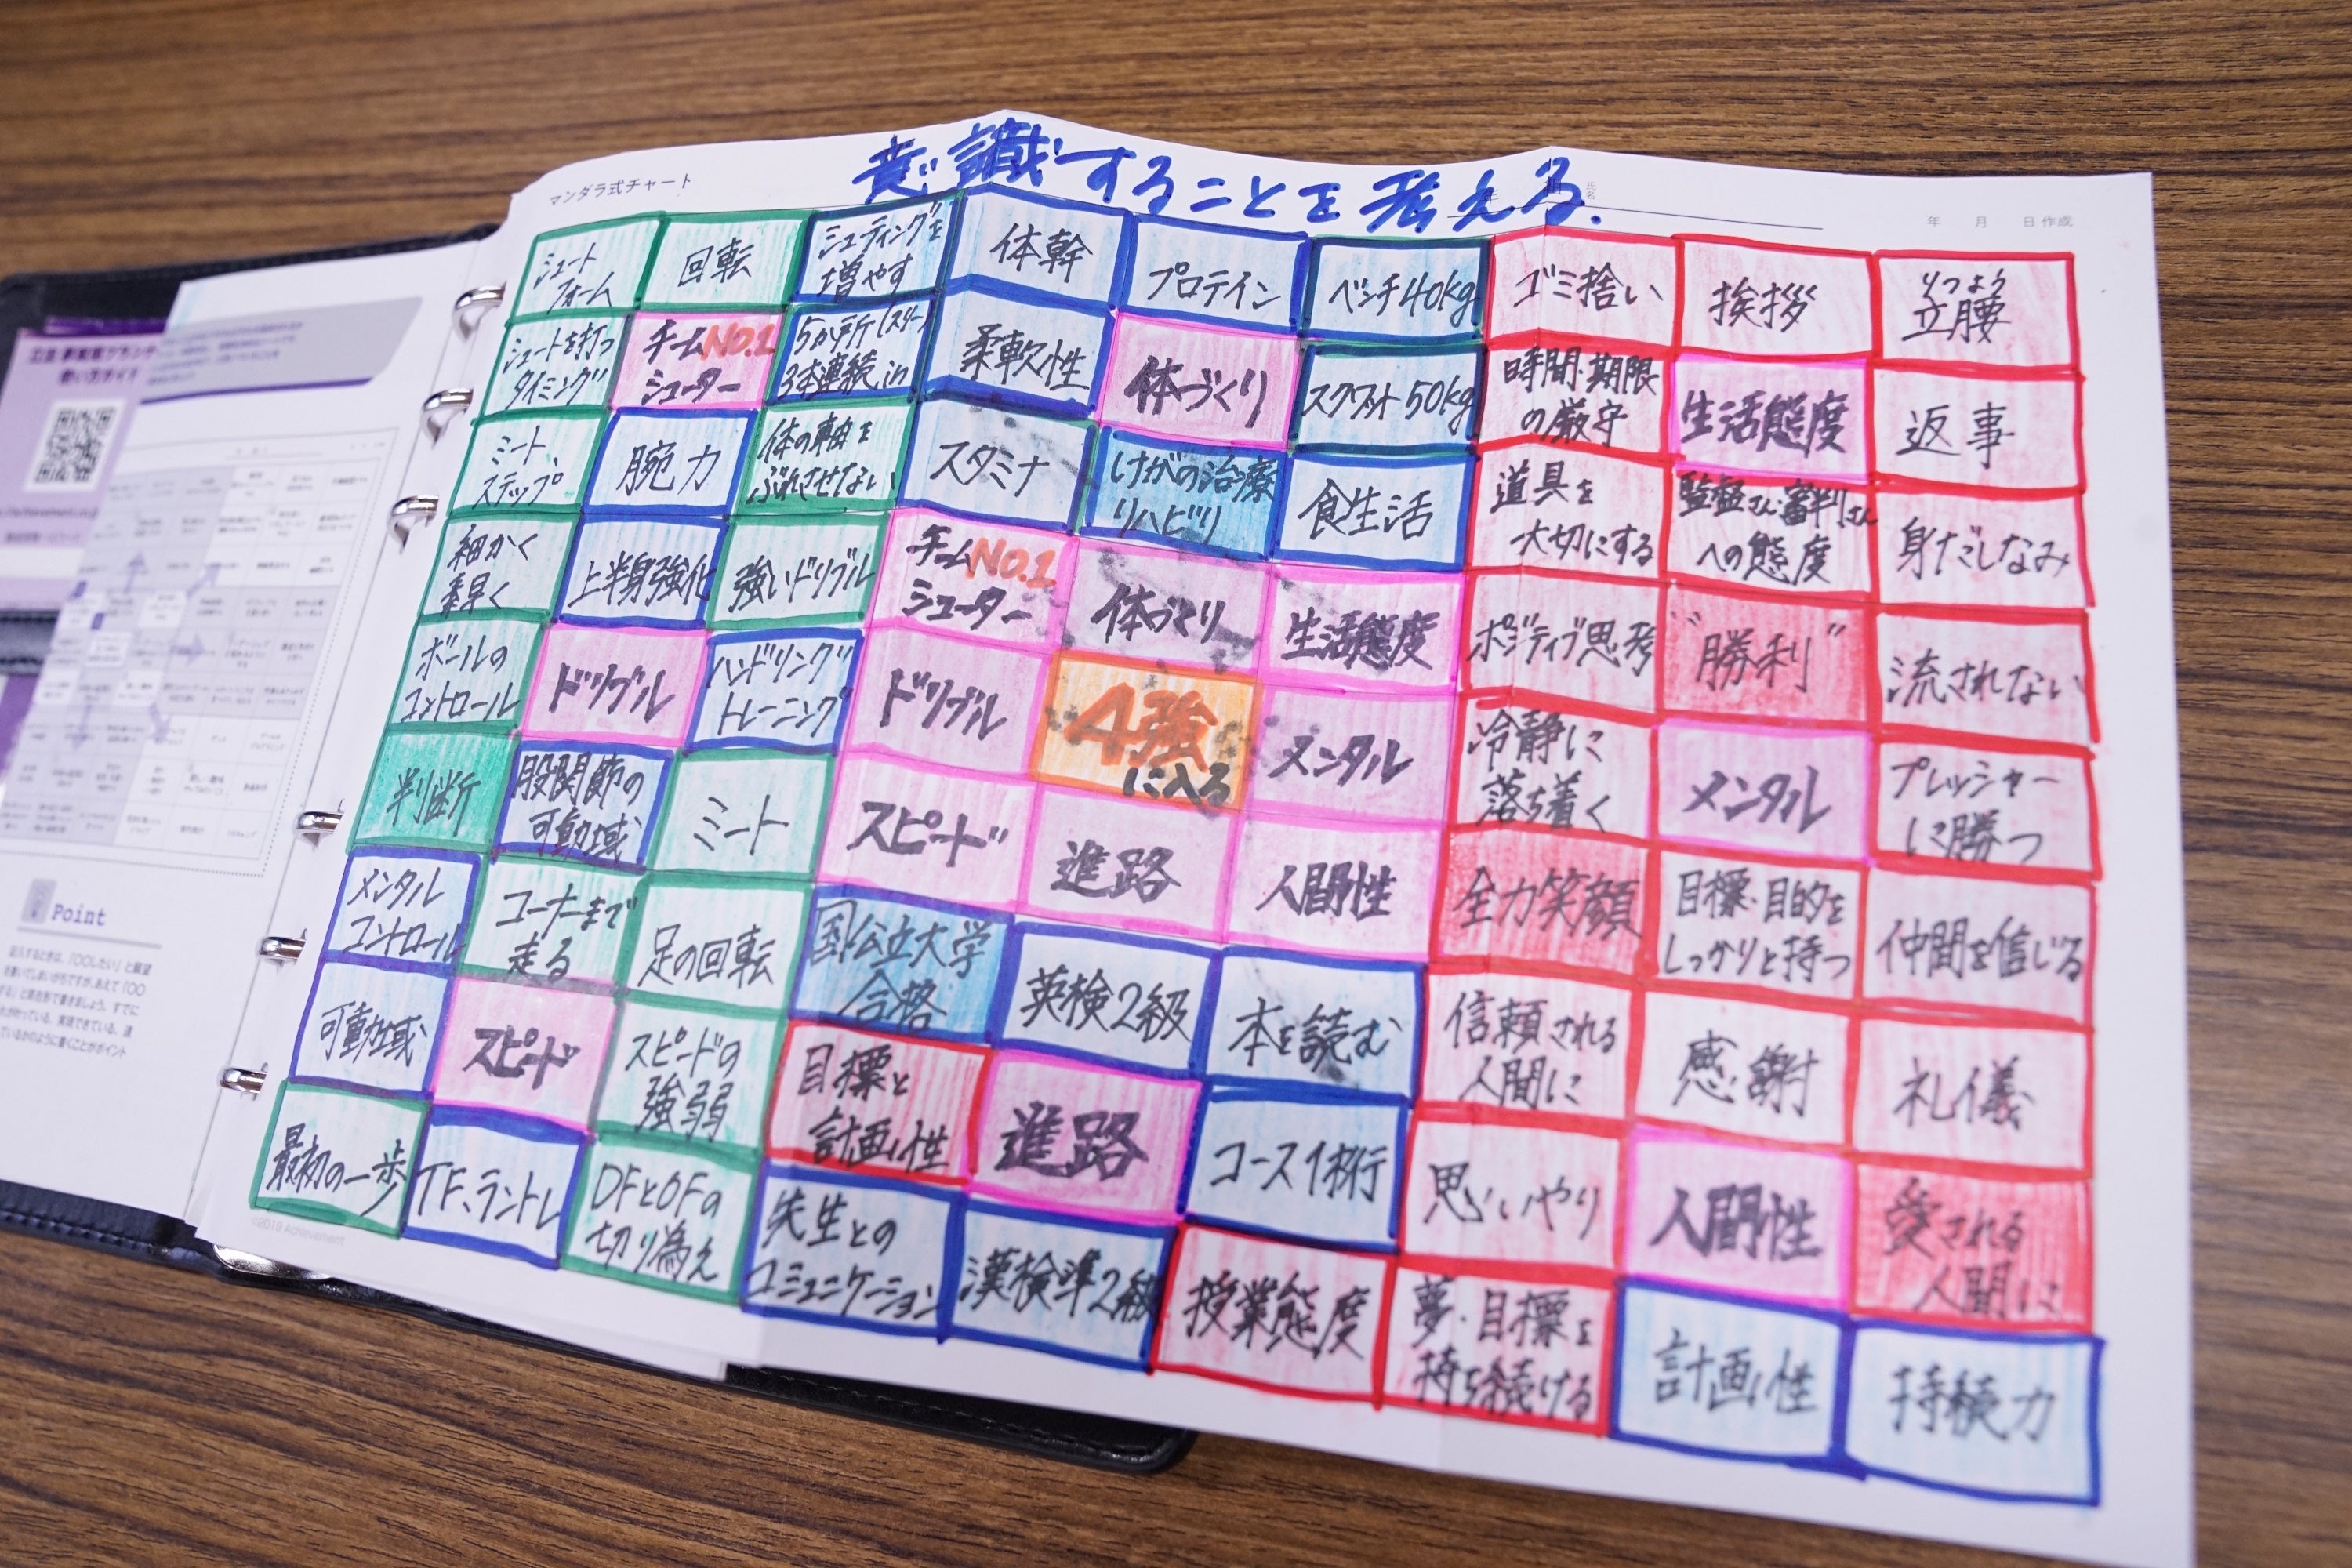 マンダラ式チャート
意識することを考える.
氏名
年 月 日作成
シュート
フォーム
回転
シューティングを
増やす
体幹
プロテイン
ベンチ40kg
ゴミ捨い
挨拶
りつよう
立腰
シュートを打つ
タイミング
チームNO.1
シューター
5か所(スリー)
3本連続in
柔軟性
体づくり
スクワット50kg
時間・期限
の厳守
生活態度
返事
ミート
ステップ
腕力
体の軸を
ぶれさせない
スタミナ
けがの治療
リハビリ
食生活
道具を
大切にする
監督さん・審判さん
への態度
身だしなみ
細かく
素早く
上半身強化
強いドリブル
チームNO.1
シューター
体づくり
生活態度
ポジティブ思考
"勝利"
流されない
ボールの
コントロール
ドリブル
ハンドリング
トレーニング
ドリブル
4強
に入る
メンタル
冷静に
落ち着く
メンタル
プレッシャー
に勝つ
判断
股関節の
可動域
ミート
スピード
進路
人間性
全力笑顔
目標・目的を
しっかりと持つ
仲間を信じる
メンタル
コントロール
コーナーまで
走る
足の回転
国公立大学
合格
英検2級
本を読む
信頼される
人間に
感謝
礼儀
可動域
スピード
スピードの
強弱
目標と
計画性
進路
コース1桁
思いやり
人間性
愛される
人間に
最初の一歩
TF、ラントレ
DFとOFの
切り為え
先生との
コミュニケーション
漢検準2級
授業態度
夢・目標を
持ち続ける
計画性
持続力
Point
©2019 Achievement